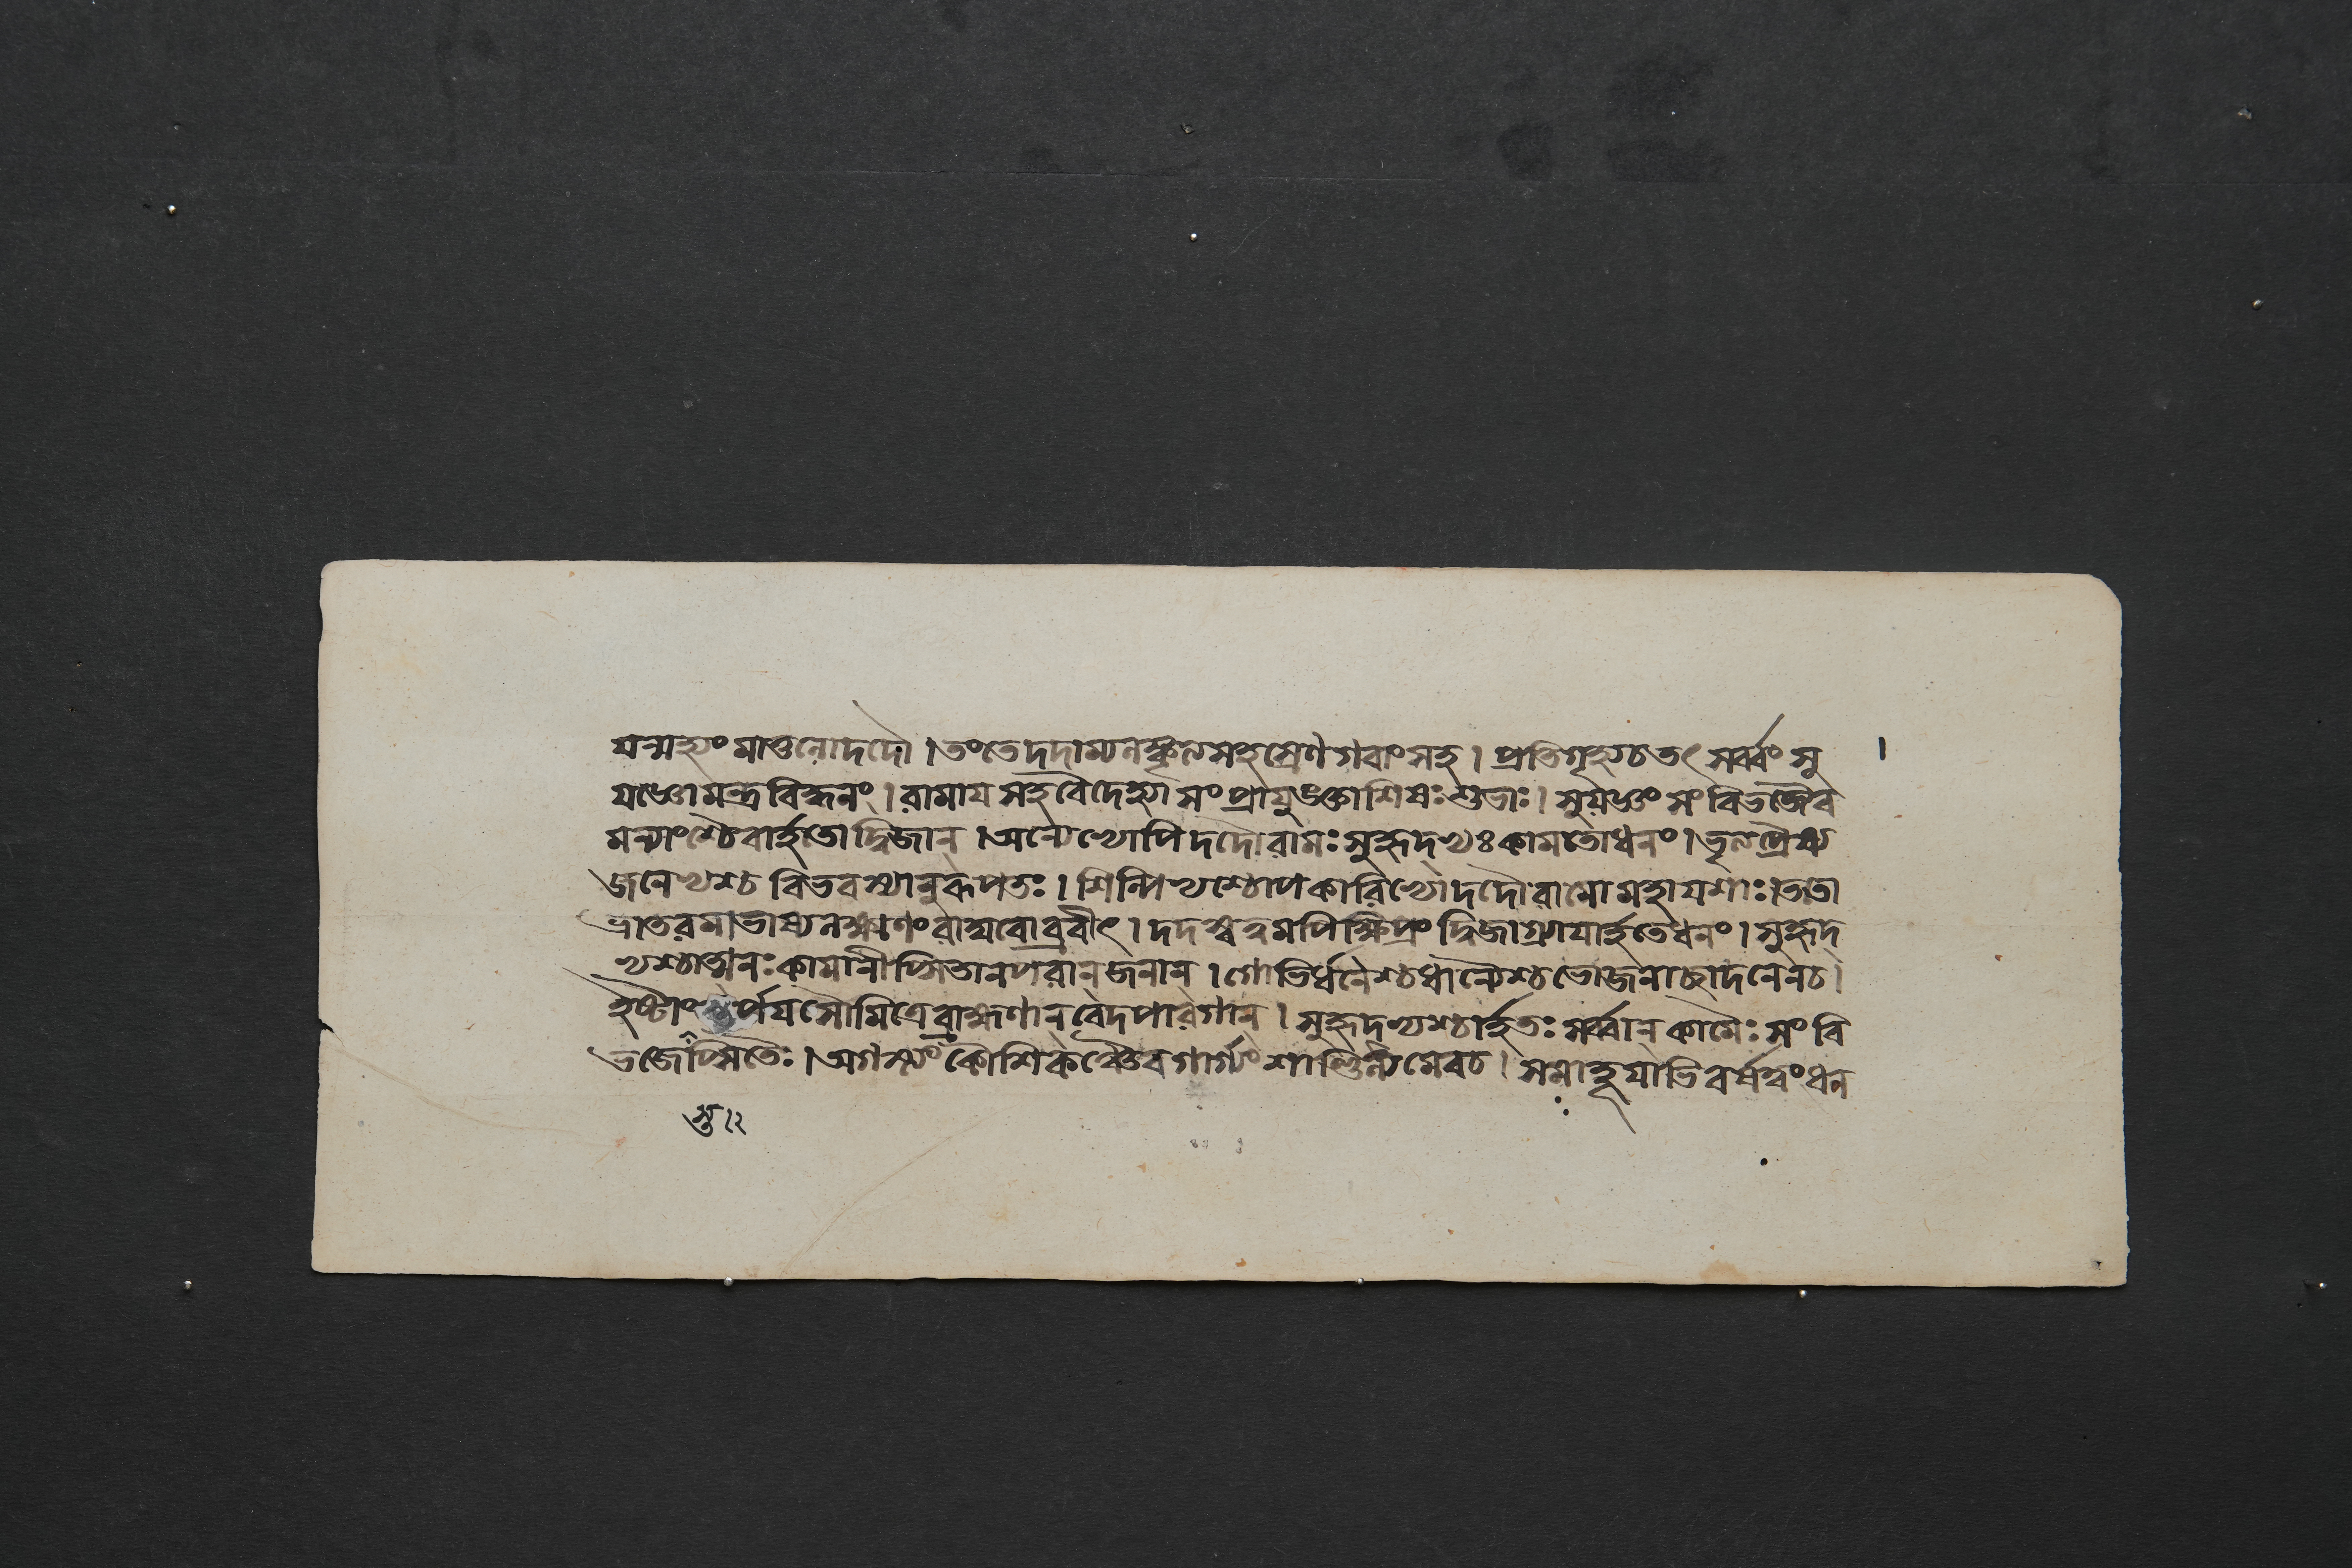 যন্মহ্যং মাতুলোদদৌ । তংতেদদাম্যলঙ্কৃতসহস্রেণগবাংসহ । প্রতিগৃহ্যচতৎ সর্ব্বং সু
যজ্ঞোমন্ত্রবিদ্ধনং । রামায সহবৈদেহ্যা সং প্রাযুঙক্তাশিষঃশুভাঃ । সুযজ্ঞং সংবিভজ্যৈব
মন্যাংশ্চৈবার্হতোদ্বিজান্ । অন্যেভ্যোপিদদৌরামঃসুহৃদ্ভ্যঃকামতোধনং । ভৃত্যপ্রেষ্য
জনেভ্যশ্চ বিভবস্যানুরূপতঃ । শিল্পিভ্যশ্চোপকারিভ্যোদদৌরামোমহাযশাঃ । ততো
ভ্রাতরমাভাষ্যলক্ষ্মণংরাঘবোব্রবীৎ । দদস্বত্বমপিক্ষিপ্রং দ্বিজাগ্র্যাযার্হতেধনং । সুহৃদ্
ভ্যশ্চাত্মনঃকামানীপ্সিতানপরান্জনান্ । গোভির্ধনৈশ্চধান্যৈশ্চভোজনাচ্ছাদনেনচ ।
হৃষ্টাং স্তর্পযসৌমিত্রেব্রাহ্মণান্বেদপারগান্ । সুহৃদ্ভ্যশ্চার্হতঃ সর্ব্বান্ কামৈঃ সং বি
ভজেপ্সিতৈঃ । অগস্ত্যং কৌশিকঞ্চৈবগার্গ্যং শাণ্ডিল্যমেবচ । সমাহূযাভিবর্ষত্বংধন
স্ত ।২